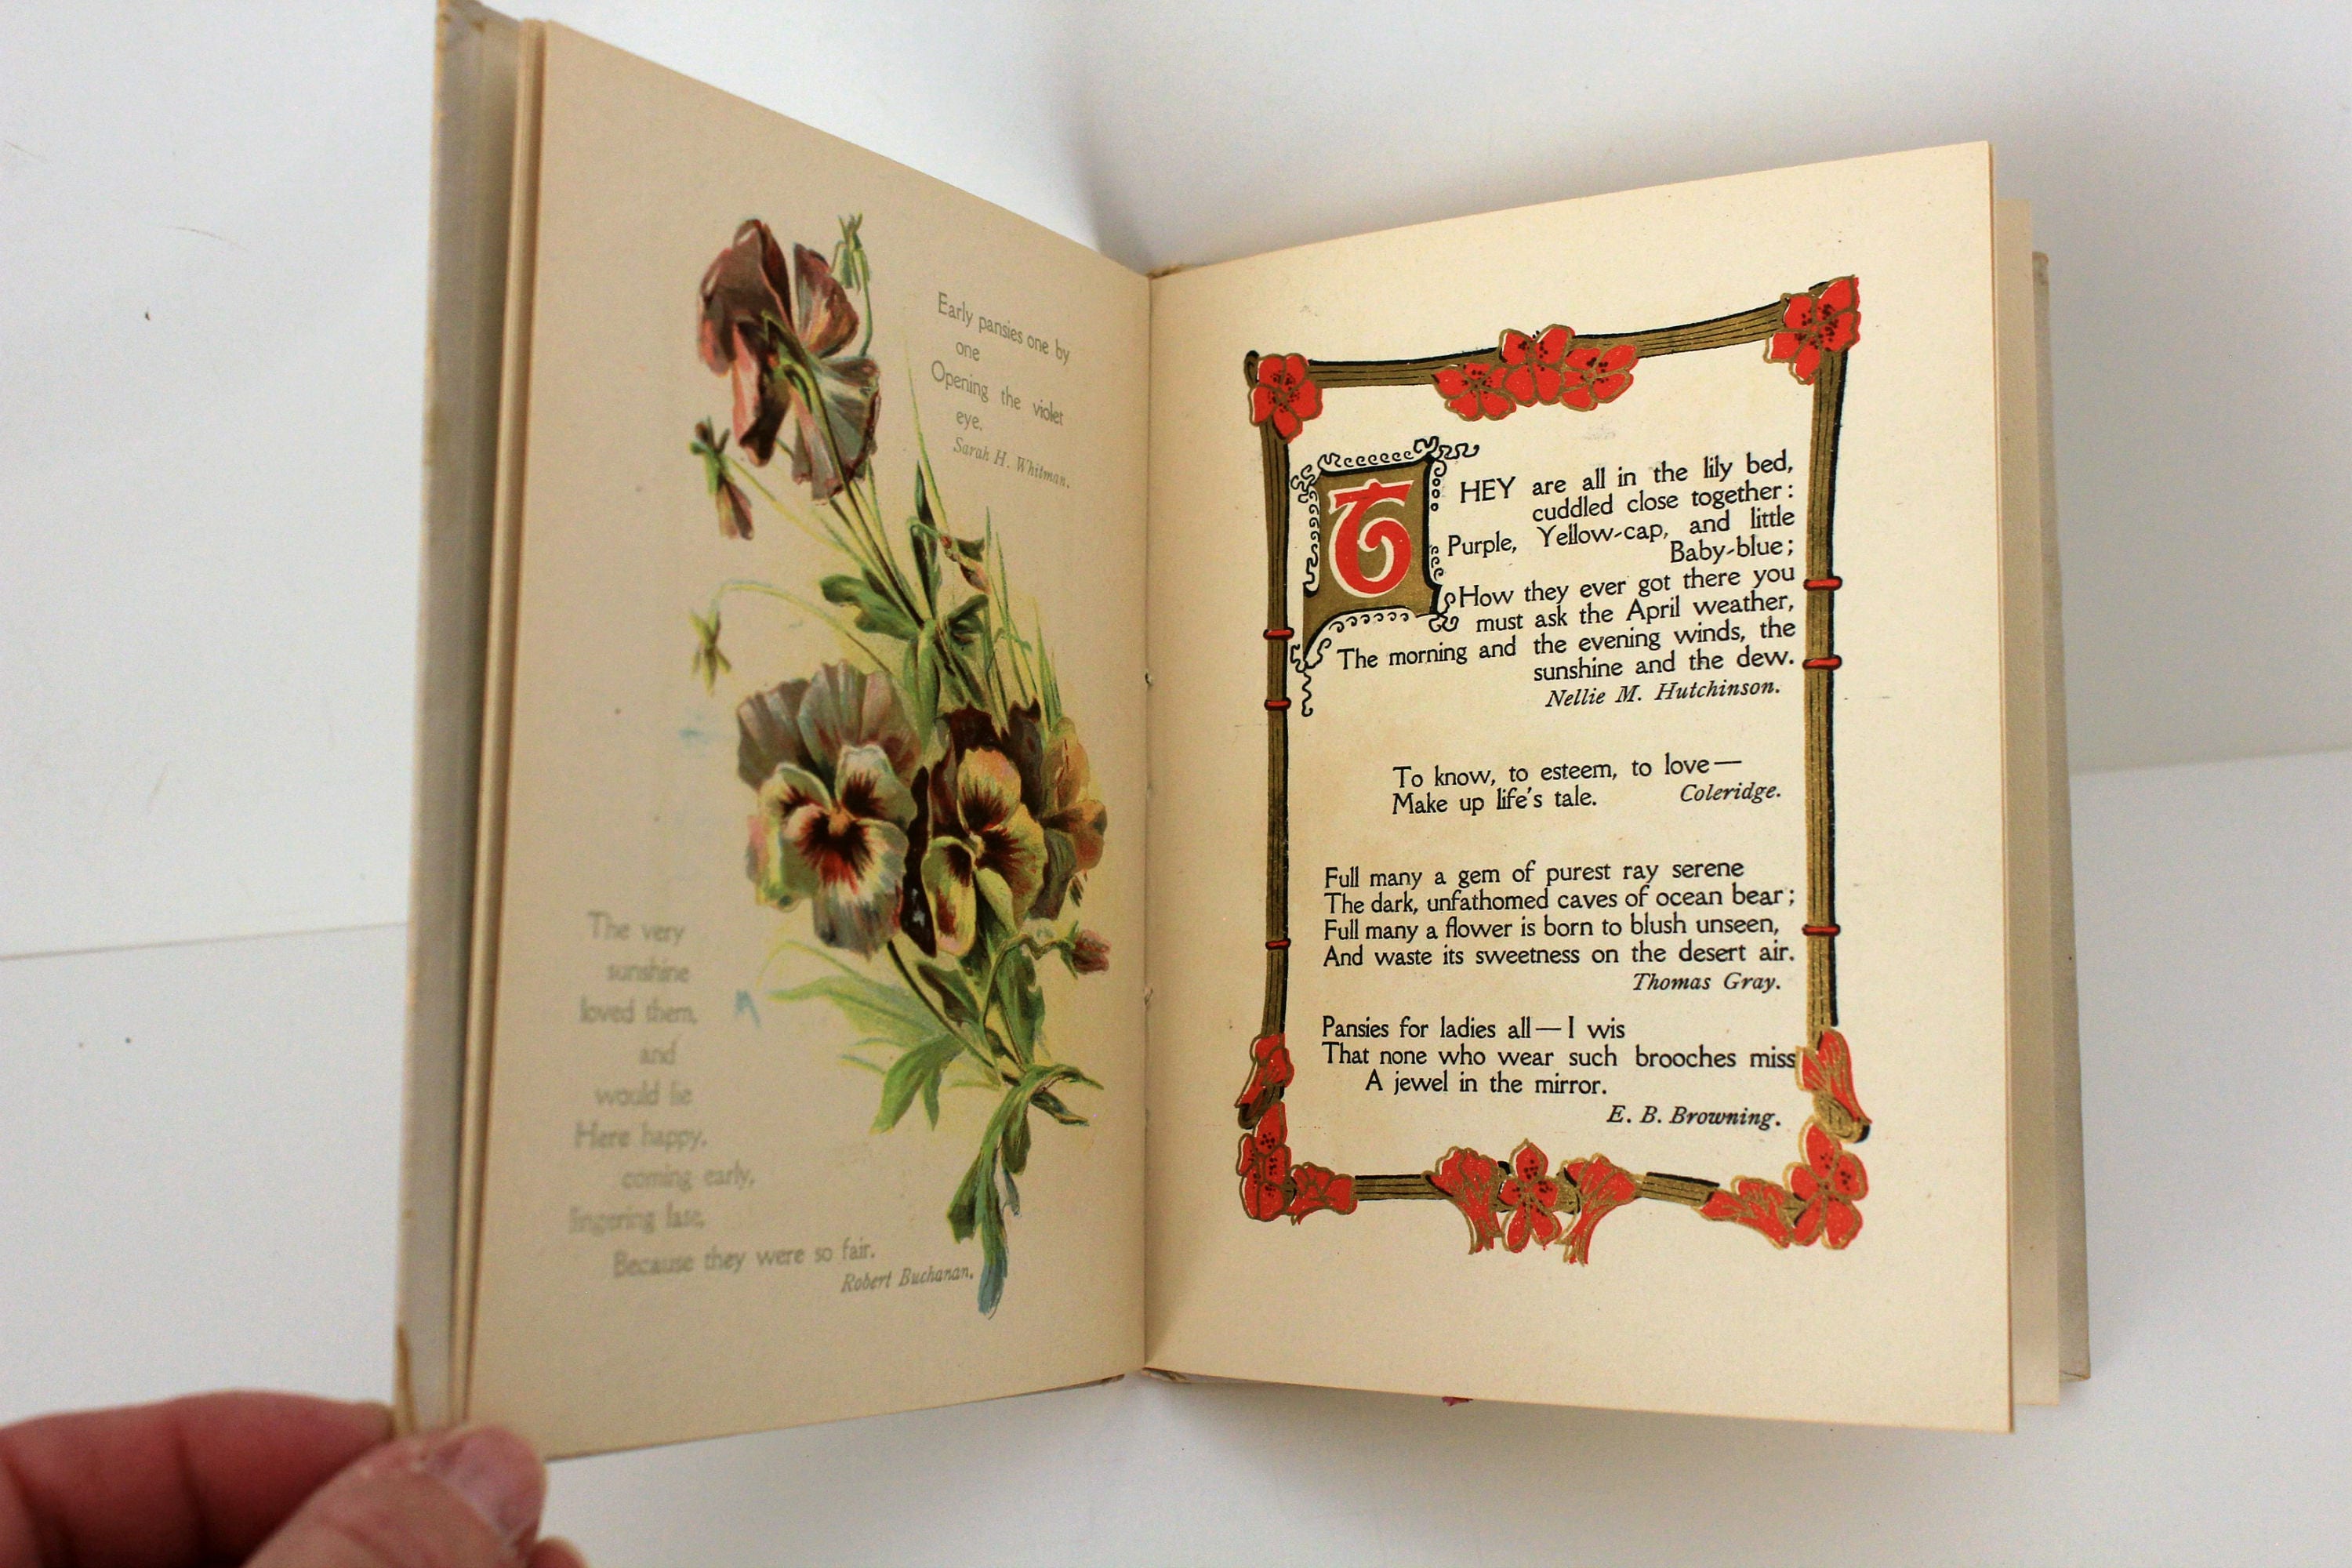 Early pansies one by
one
Opening the violet
eye.
Sarah H. Whitman.
The very
sunshine
loved them,
and
would lie
Here happy,
coming early,
lingering late,
Because they were so fair.
Robert Buchanan.
THEY are all in the lily bed,
cuddled close together:
Purple, Yellow-cap, and little
Baby-blue;
How they ever got there you
must ask the April weather,
The morning and the evening winds, the
sunshine and the dew.
Nellie M. Hutchinson.
To know, to esteem, to love—
Make up life's tale. Coleridge.
Full many a gem of purest ray serene
The dark, unfathomed caves of ocean bear;
Full many a flower is born to blush unseen,
And waste its sweetness on the desert air.
Thomas Gray.
Pansies for ladies all—I wis
That none who wear such brooches miss
A jewel in the mirror.
E. B. Browning.